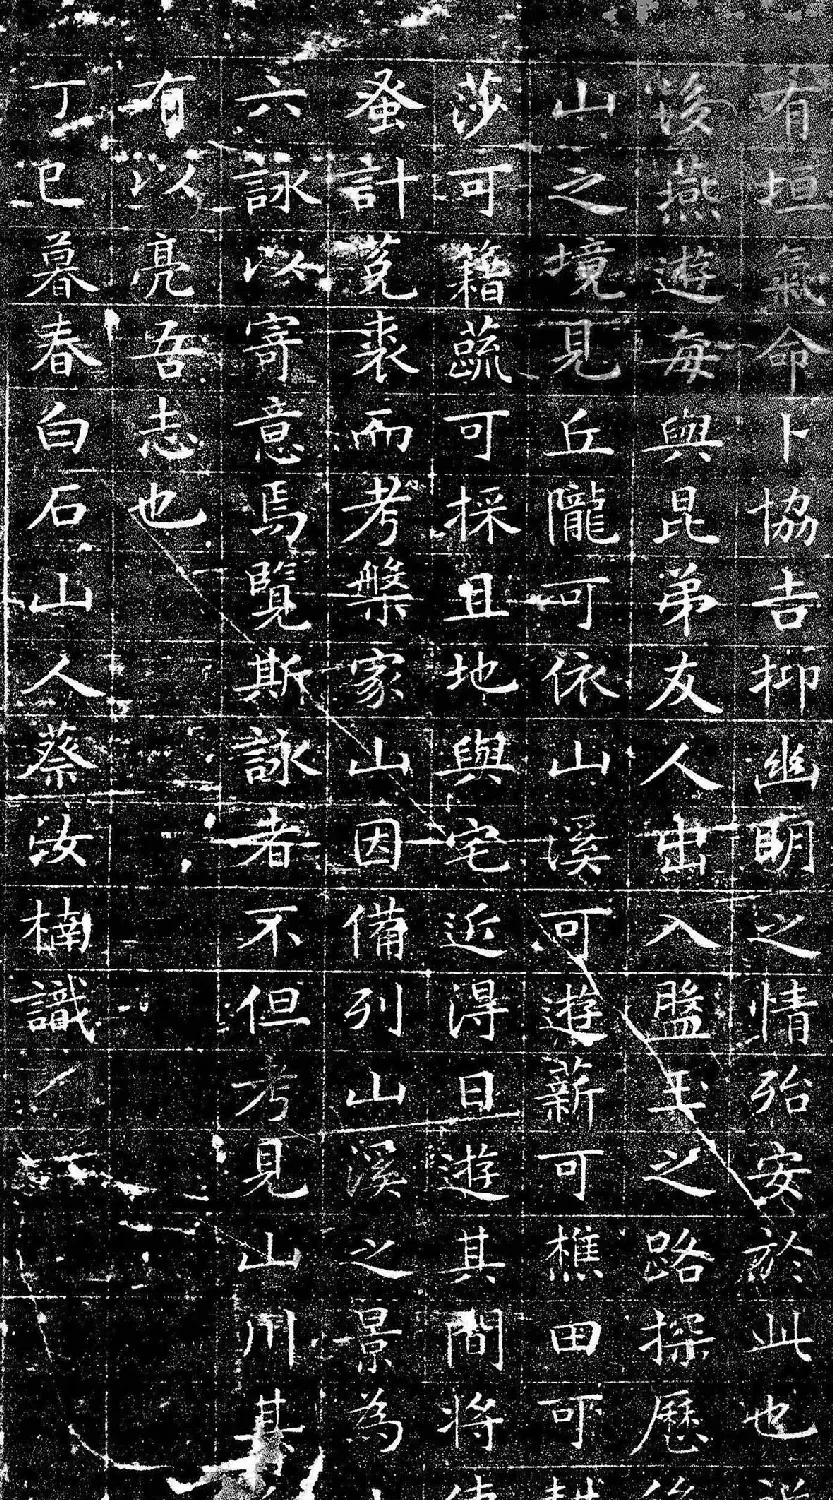 有垣氣命卜協吉抑幽明之情殆安於此也
後燕遊每與昆弟友人出入盤玉之路探歷
山之境見丘隴可依山溪可遊薪可樵田可耕
莎可籍蔬可採且地與宅近得日遊其間將使
蚤計菟裘而考槃家山因備列山溪之景為
六詠以寄意焉覽斯詠者不但考見山川其
有以亮吾志也
丁巳暮春白石山人蔡汝楠識